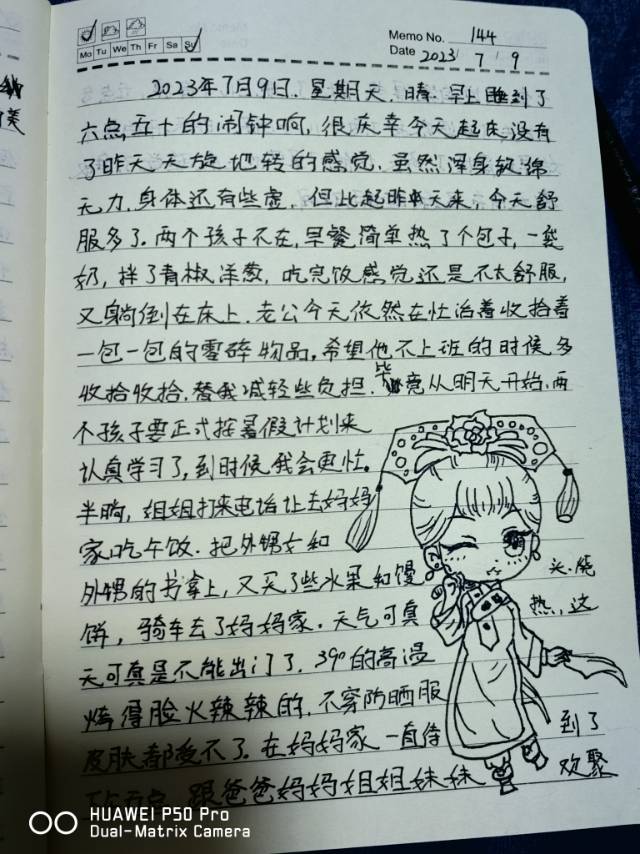 Memo No. 144
Mo Tu We Th Fr Sa Su
Date 2023 / 7 / 9
2023年7月9日. 星期天. 晴. 早上睡到了
六点五十的闹钟响, 很庆幸今天起床没有
了昨天天旋地转的感觉. 虽然浑身软绵
无力, 身体还有些虚. 但比起昨天来, 今天舒
服多了. 两个孩子不在, 早餐简单热了个包子, 一袋
奶, 拌了青椒洋葱, 吃完饭感觉还是不太舒服,
又躺倒在床上. 老公今天依然在忙活着收拾着
一包一包的零碎物品, 希望他不上班的时候多
收拾收拾, 替我减轻些负担. 毕竟从明天开始, 两
个孩子要正式按暑假计划来
认真学习了, 到时候我会更忙。
半晌, 姐姐打来电话让去妈妈
家吃午饭. 把外甥女和
外甥的书拿上, 又买了些水果和馒
饼, 骑车去了妈妈家. 天气可真
热, 这
天可真是不能出门了. 39°的高温
烤得脸火辣辣的, 不穿防晒服
皮肤都受不了. 在妈妈家一直待
到了
跟爸爸妈妈姐姐妹妹
欢聚
HUAWEI P50 Pro
Dual-Matrix Camera